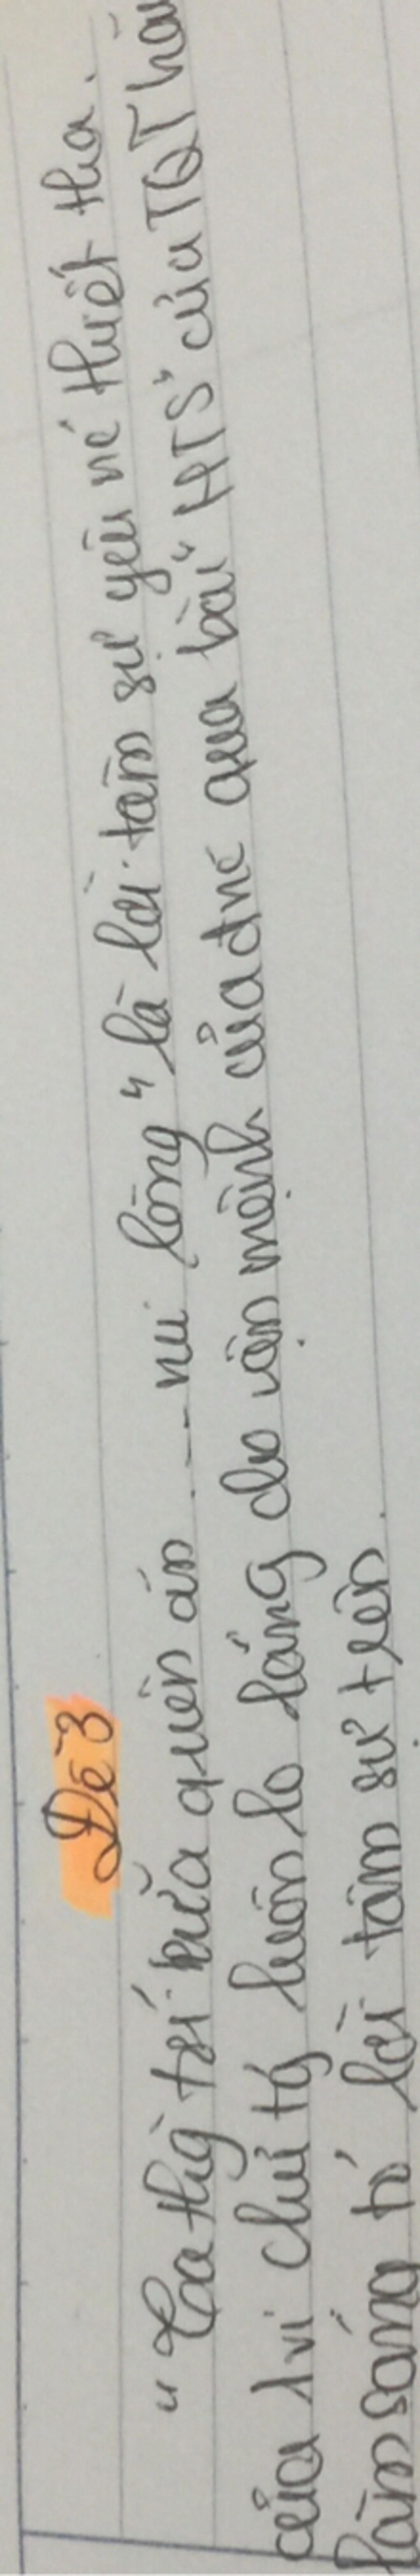 Đề 3
"Ta thg̀ tới bữa quên ăn ... vui lòng" là lời tâm sự yêu nc thiết tha
của 1 vị chủ tg luôn lo lắng cho vận mệnh của đnc qua bài "HTS" của TQT hãy
làm sáng tỏ lời tâm sự trên.